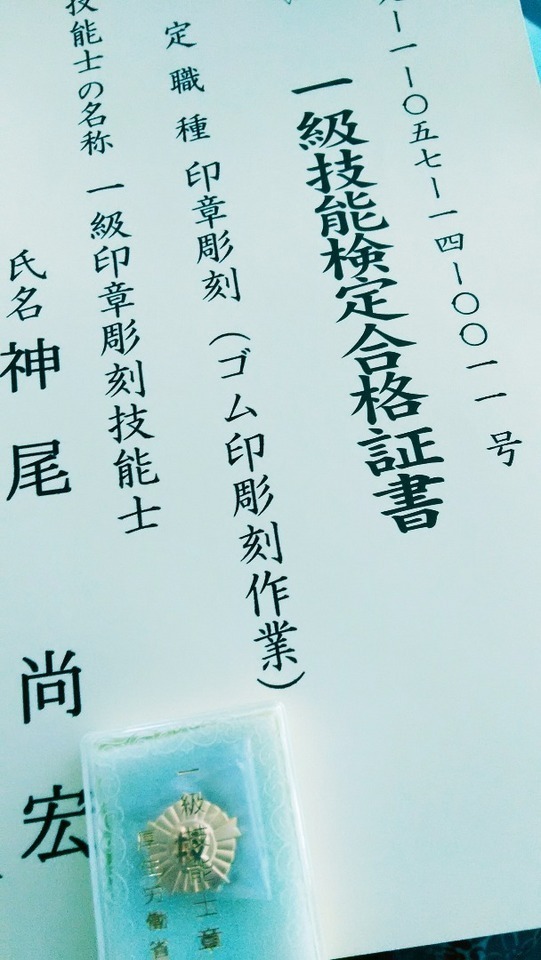 一一〇五七一一四一〇〇一一号
一級技能検定合格証書
定職種 印章彫刻(ゴム印彫刻作業)
技能士の名称 一級印章彫刻技能士
氏名 神尾 尚宏
一級技能士章
厚生労働省